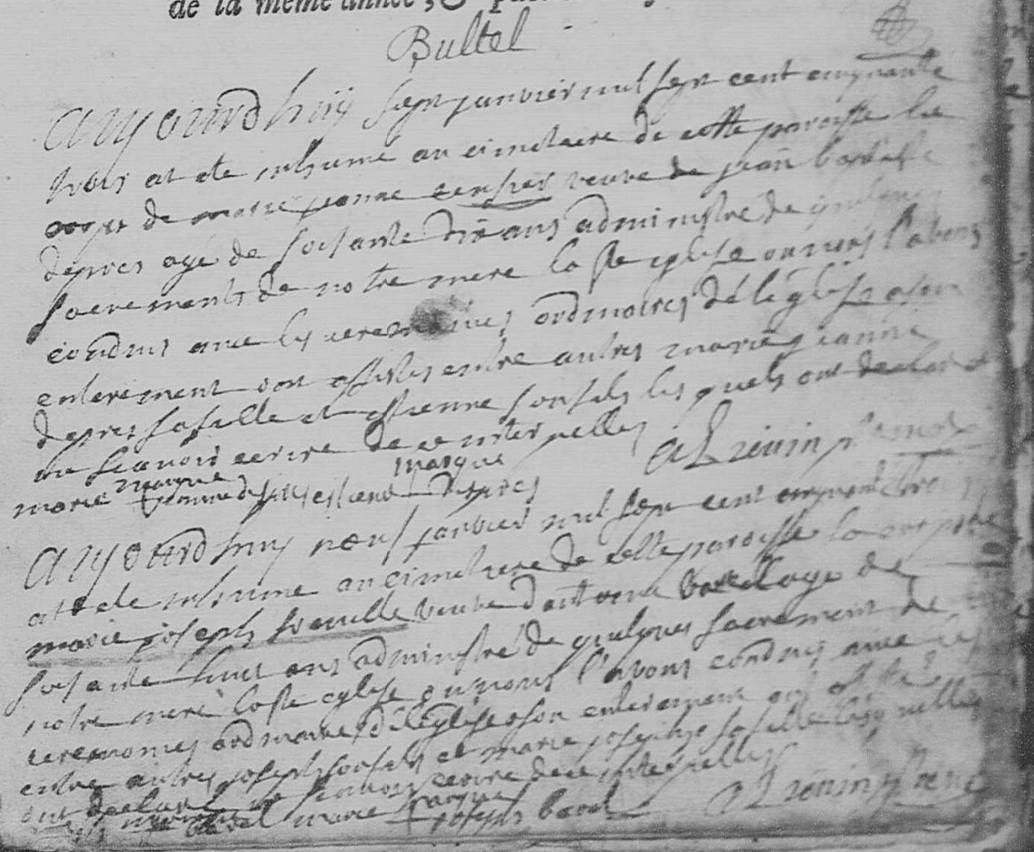 de la même année, &
Bultel
Aujourd huij sept janvier mil sept cent cinquante
trois at ete inhumé au cimetaire de cette paroisse le
corps de marie jeanne veuve de jean baptiste
depres agé de soisante dix ans administré de quelques
sacrements de notre mere la ste eglise ou nous l'avons
conduis avec les ceremonies ordinaires de l'eglise a son
enterement ont assistes entre autres marie jeanne
depres sa fille et estienne son fils les quels ont declaré
ne scavoir ecrire de ce interpelles
marque marque
marie jeanne depres estienne depres
Aujourd huy neuf janvier mil sept cent cinquante trois
at ete inhumé au cimetiere de cette paroisse le corps de
marie joseph veuve d'antoine bavel agé de
soisante huit ans administré de quelques sacrement de
notre mere la ste eglise ou nous l'avons conduis avec les
ceremonies ordinaires de l'eglise a son enterement ont assisté
entre autres joseph son fils et marie joseph sa fille lesquelles
ont declaré ne scavoir ecrire de ce interpelles
marque
bavel marie joseph bavel